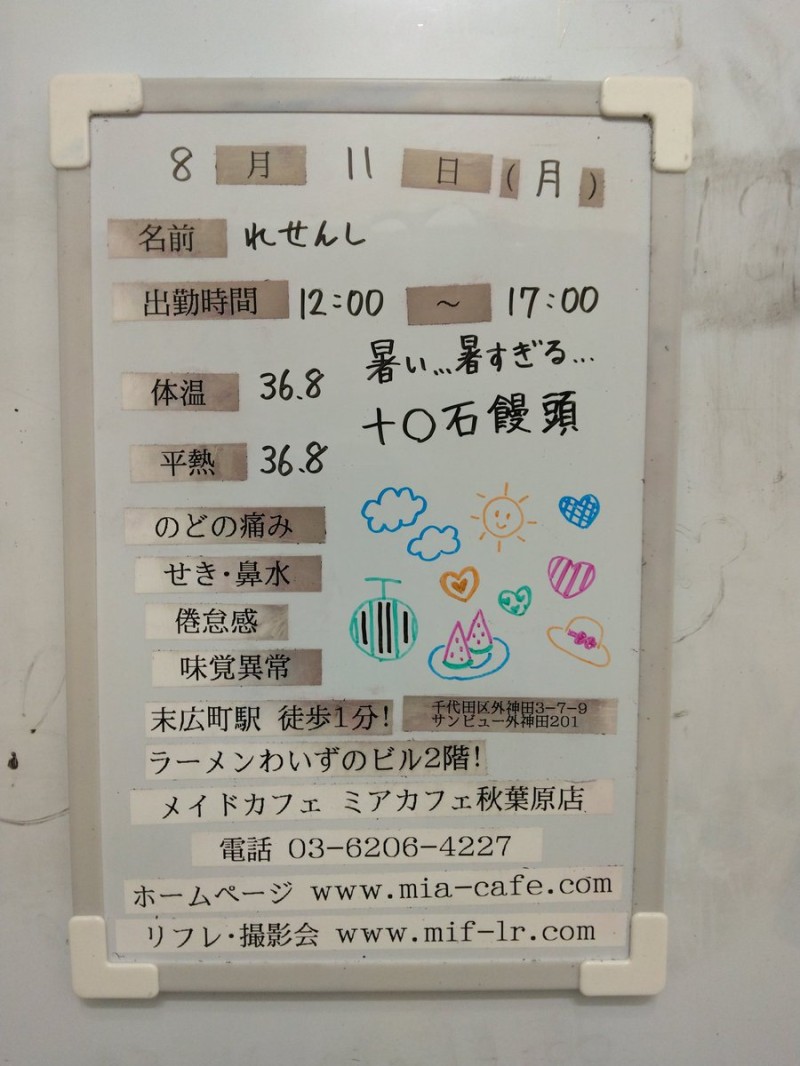 8月11日(月)
名前 れせんし
出勤時間 12:00 ～ 17:00
暑い...暑すぎる...
体温 36.8
十〇石饅頭
平熱 36.8
のどの痛み
せき・鼻水
倦怠感
味覚異常
末広町駅 徒歩1分!
千代田区外神田3-7-9
サンビュー外神田201
ラーメンわいずのビル2階!
メイドカフェ ミアカフェ秋葉原店
電話 03-6206-4227
ホームページ www.mia-cafe.com
リフレ・撮影会 www.mif-lr.com